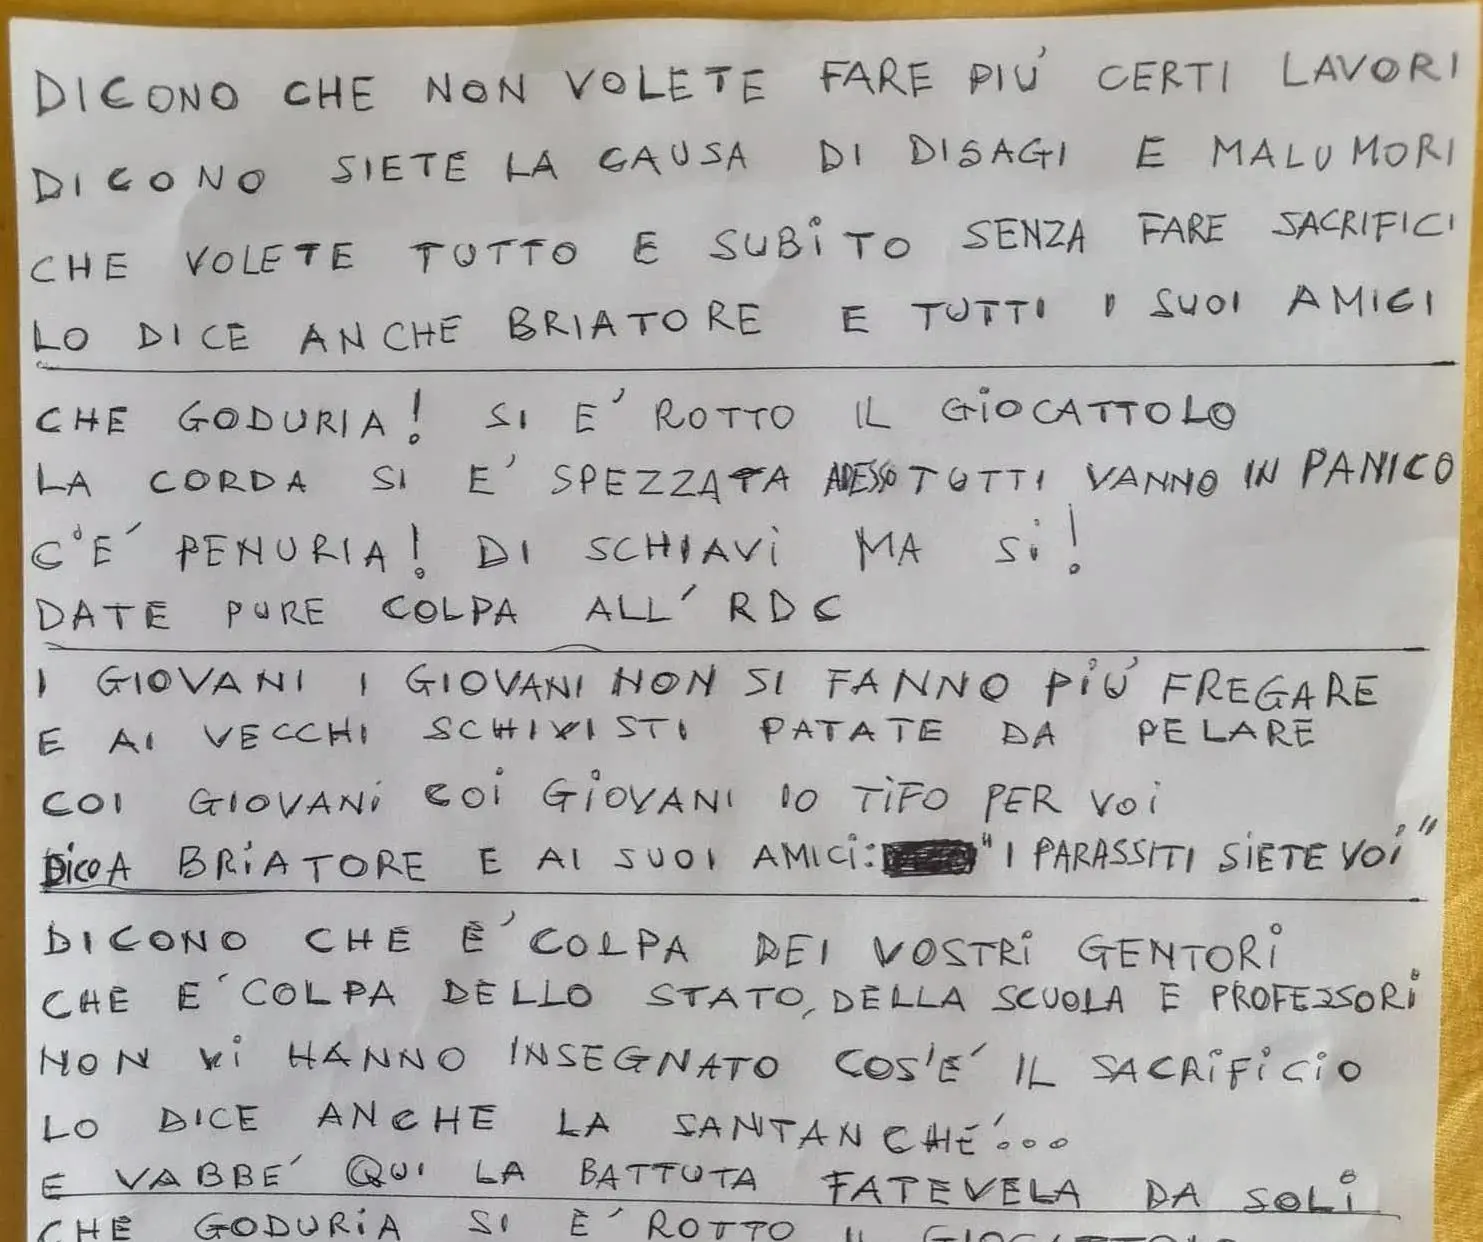 DICONO CHE NON VOLETE FARE PIU' CERTI LAVORI
DICONO SIETE LA CAUSA DI DISAGI E MALUMORI
CHE VOLETE TUTTO E SUBITO SENZA FARE SACRIFICI
LO DICE ANCHE BRIATORE E TUTTI I SUOI AMICI
CHE GODURIA! SI E' ROTTO IL GIOCATTOLO
LA CORDA SI E' SPEZZATA ADESSO TUTTI VANNO IN PANICO
C'E' PENURIA! DI SCHIAVI MA SI!
DATE PURE COLPA ALL' RDC
I GIOVANI I GIOVANI NON SI FANNO PIU' FREGARE
E AI VECCHI SCHIVISTI PATATE DA PELARE
COI GIOVANI COI GIOVANI IO TIFO PER VOI
DICO A BRIATORE E AI SUOI AMICI: "I PARASSITI SIETE VOI"
DICONO CHE E' COLPA DEI VOSTRI GENTORI
CHE E' COLPA DELLO STATO, DELLA SCUOLA E PROFESSORI
NON VI HANNO INSEGNATO COS'E' IL SACRIFICIO
LO DICE ANCHE LA SANTANCHE'...
E VABBE' QUI LA BATTUTA FATEVELA DA SOLI
CHE GODURIA SI E' ROTTO IL GIOCATTOLO